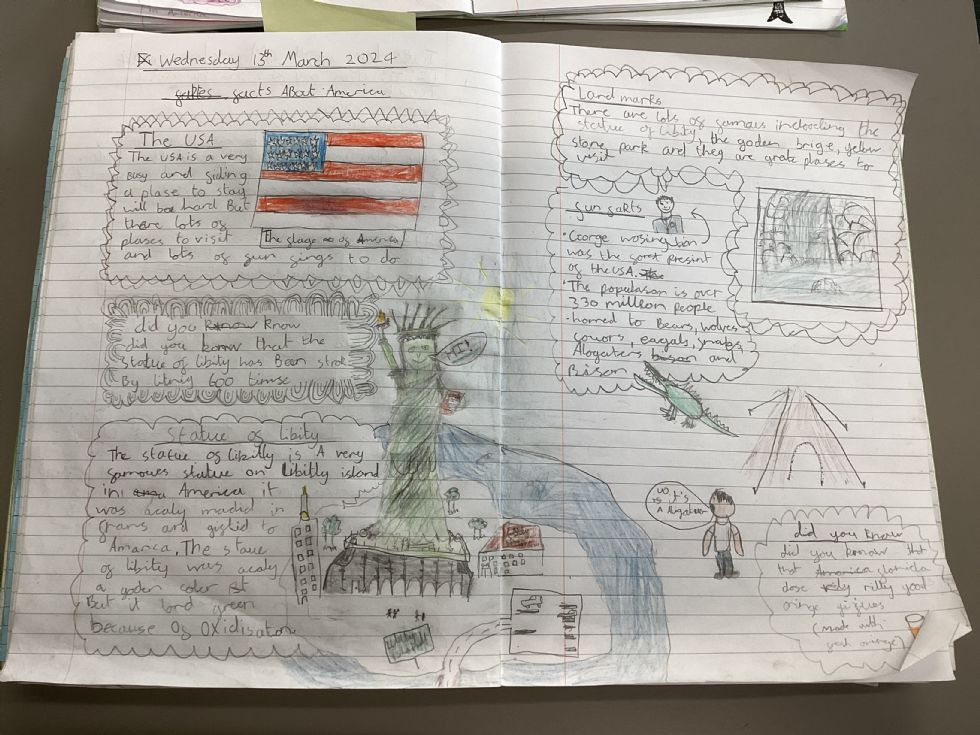 in America
Wednesday 13th March 2024
gacts About America
The USA
The USA is a very
Busy and giding
a plase to stay
will be hard But
there lots of
plases to visit
and lots of gun gings to do
The glage of America
did you know
did you know that the
Statue of libity has Been strok
By litnig 600 timse
HI!
Statue of libity
The statue of libitly is A very
gamowes statue on Libitly island
in America it
was acaly machd in
grans and gigtid to
Amarica, The staue
of libity was acaly
a goden coler
But it tond green
because of Oxidisaton
Land marks
There are lots of gamous inclooding the
statue of libity, the goden brige, yelow
stone park and they are grate plases to
visit
gun gakts
• George wosingtion
was the gorst present
of the USA.
• The populason is over
330 million people
• homed to Bears, wolves
cowors, eagals, snakes,
Alogaters and
Bison
uo, it's
a Aligater
did you know
did you know that
that glorida
dose rilly good
oringe gizues
(made with